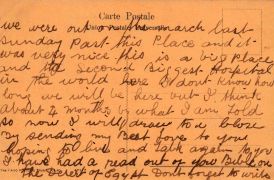 we were out on the march last
Carte Postale
Sunday Past this Place and it
Union Postale Universelle
was very nice this is a big Place
and the Second Biggest Hospital
in the world here I dont know how
long we will be here but I think
about 4 months by what I am told
so now I will draw to a close
by sending my Best love to you
hoping to live and talk again to you
I have had a read out of your Bible on
the Desert of Egypt Dont forget to write